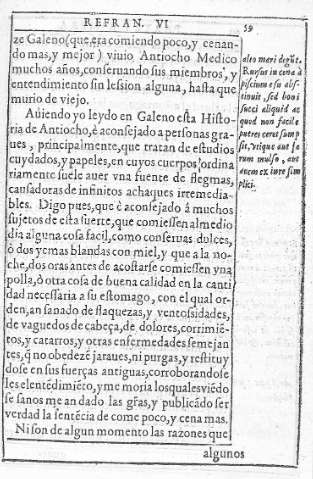 REFRAN. VI
59
ze Galeno (que, era comiendo poco, y cenan-
do mas, y mejor) viuio Antiocho Medico
muchos años, conseruando sus miembros, y
entendimiento sin lession alguna, hasta que
murio de viejo.
Auiendo yo leydo en Galeno esta Histo
ria de Antiocho, è aconsejado a personas gra-
ues, principalmente, que tratan de estudios
cuydados, y papeles, en cuyos cuerpos ordina
riamente suele auer vna fuente de flegmas,
causadoras de infinitos achaques irremedia-
bles. Digo pues, que è aconsejado â muchos
sujetos de esta suerte, que comiessen al medio
dia alguna cosa facil, como conseruas dulces,
ò dos yemas blandas con miel, y que a la no-
che, dos oras antes de acostarse comiessen vna
polla, ò otra cosa de buena calidad en la canti
dad necessaria a su estomago, con el qual or-
den, an sanado de flaquezas, y ventosidades,
de vaguedos de cabeça, de dolores, corrimiē-
tos, y catarros, y otras enfermedades semejan
tes, q̃ no obedezē jaraues, ni purgas, y restituy
dose en sus fuerças antiguas, corroborandose
les el entēdimiēto, y memoria los quales viēdo
se sanos me an dado las gr̃as, y publicādo ser
verdad la sentēcia de come poco, y cena mas.
Ni son de algun momento las razones que
algunos
alto meri degūt.
Rursus in cena à
piscium esu abs-
tinuit, sed boni
succi aliquid ac
quod non facile
putresceret sump
sit, vtique aut fa
rum mulso, aut
auem ex iure sim
plici.